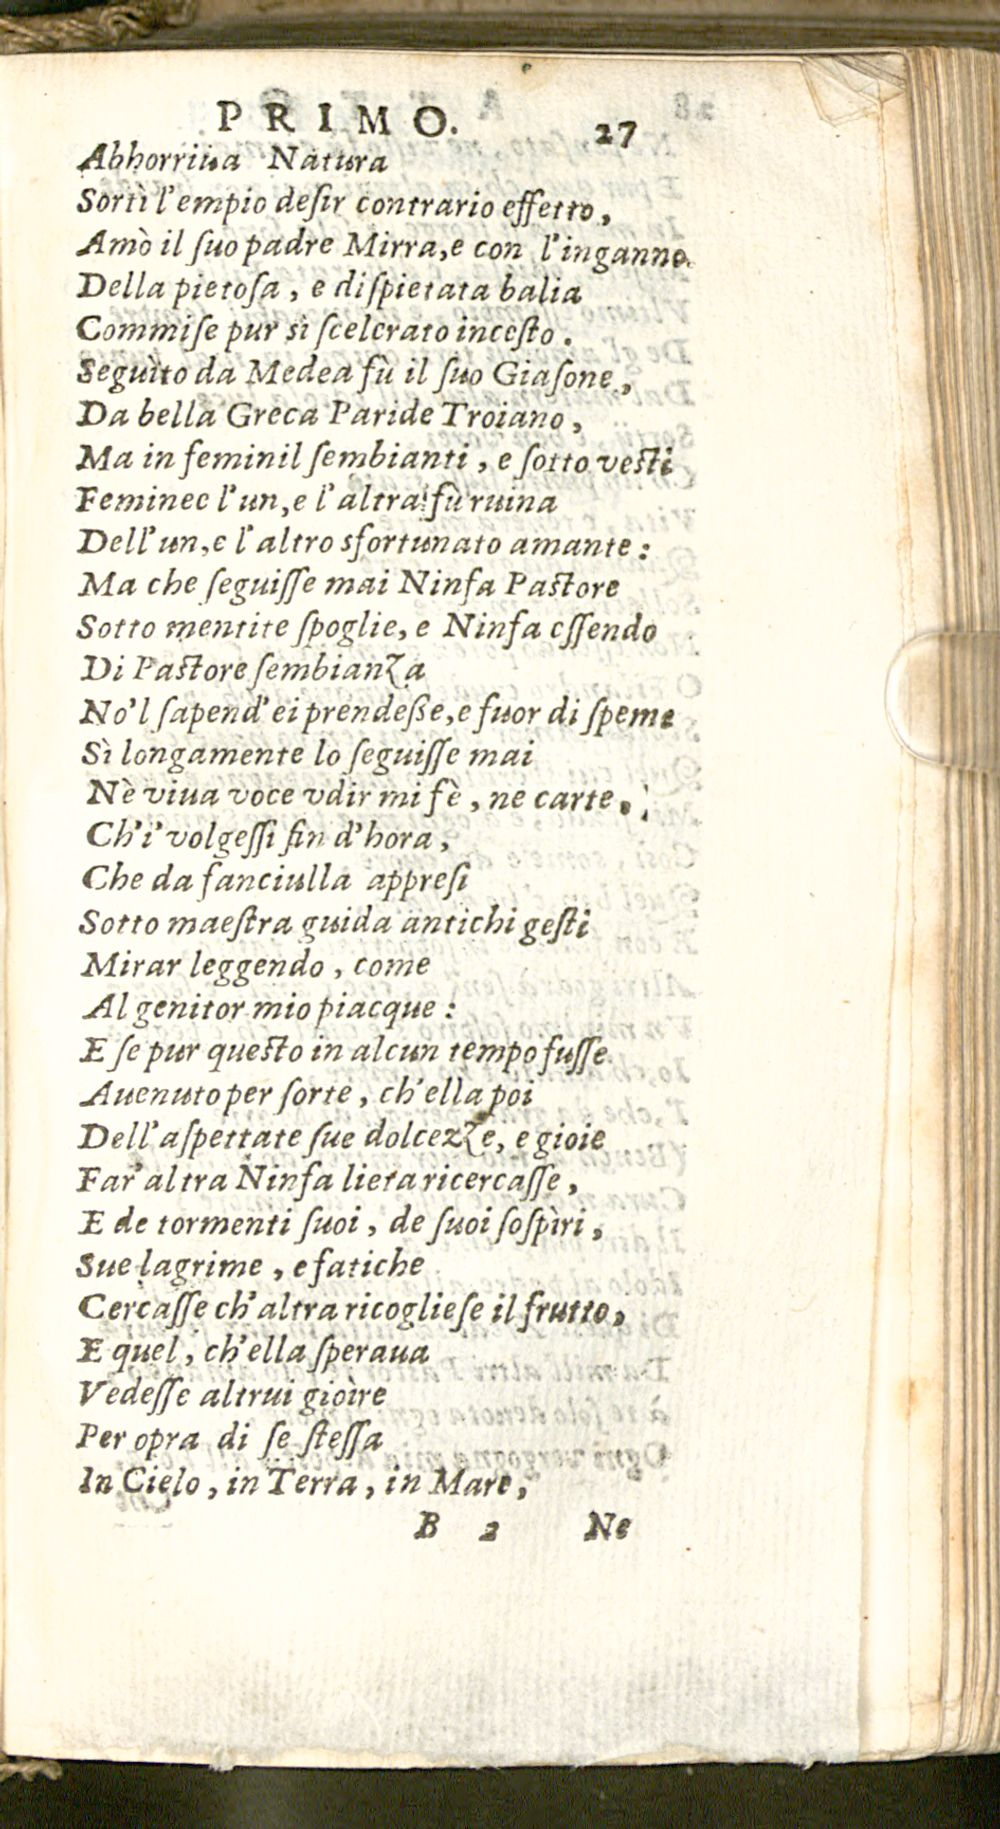 PRIMO. 27
Abhorriua Natura
Sortì l'empio deſir contrario effetto,
Amò il ſuo padre Mirra, e con l'inganno.
Della pietoſa, e diſpietata balia
Commiſe pur sì ſcelerato inceſto.
Seguìto da Medea fù il ſuo Giaſone,
Da bella Greca Paride Troiano,
Ma in feminil ſembianti, e ſotto veſti
Feminee l'un, e l'altra fù ruina
Dell'un, e l'altro sfortunato amante:
Ma che ſeguiſſe mai Ninfa Paſtore
Sotto mentite ſpoglie, e Ninfa eſſendo
Di Paſtore ſembianza
No'l ſapend' ei prendeße, e fuor di ſpeme
Sì longamente lo ſeguiſſe mai
Nè viua voce vdir mi fè, ne carte,
Ch'i' volgeſſi fin d'hora,
Che da fanciulla appreſi
Sotto maeſtra guida antichi geſti
Mirar leggendo, come
Al genitor mio piacque:
E ſe pur queſto in alcun tempo fuſſe
Auenuto per ſorte, ch'ella poi
Dell'aſpettate ſue dolcezze, e gioie
Far' altra Ninfa lieta ricercaſſe,
E de tormenti ſuoi, de ſuoi ſoſpìri,
Sue lagrime, e fatiche
Cercaſſe ch'altra ricoglieſe il frutto,
E quel, ch'ella ſperaua
Vedeſſe altrui gioìre
Per opra di ſe ſteſſa
In Cielo, in Terra, in Mare,
B 2 Ne